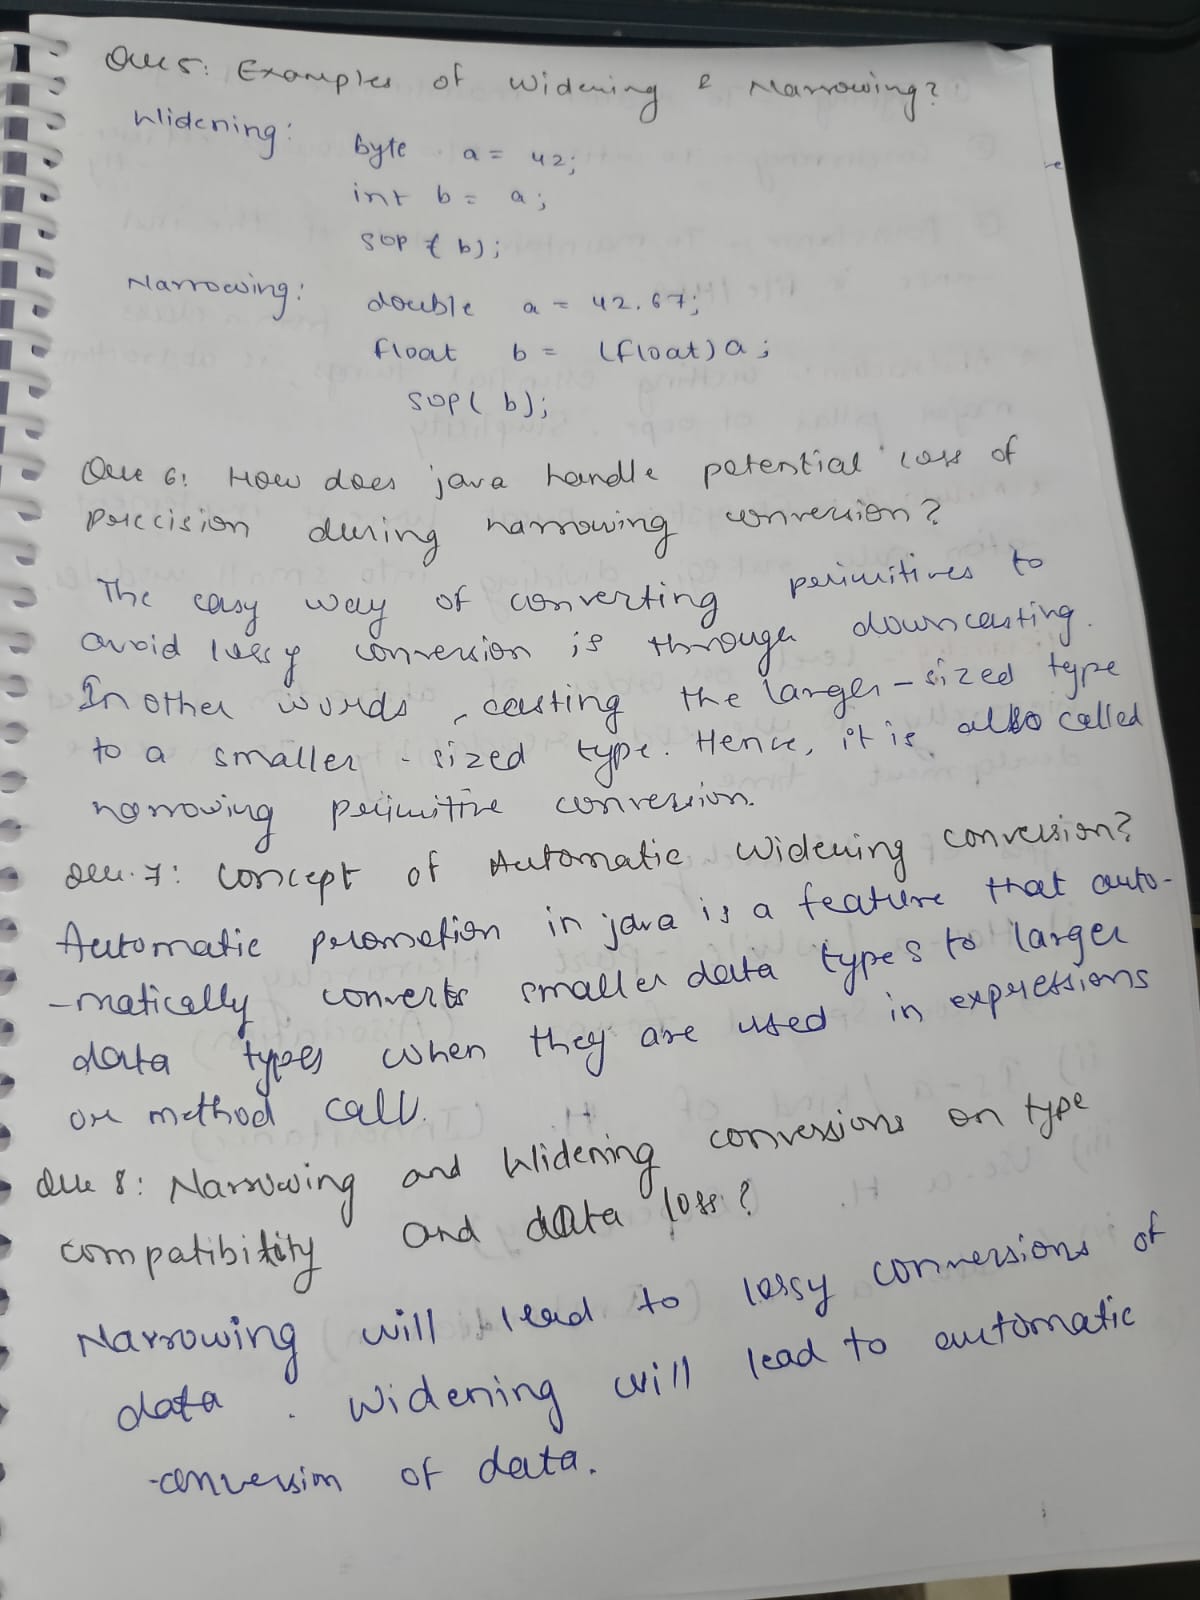 Que 5: Examples of Widening & Narrowing?
Widening: byte a = 42;
int b = a;
sop ( b);
Narrowing: double a = 42.67;
float b = (float) a;
sop( b);
Que 6: How does java handle potential loss of
precision during narrowing conversion?
The easy way of converting primitives to
avoid lossy conversion is through downcasting.
In other words, casting the larger-sized type
to a smaller-sized type. Hence, it is also called
narrowing primitive conversion.
Que. 7: Concept of Automatic Widening conversion?
Automatic promotion in java is a feature that auto-
-matically converts smaller data types to larger
data types when they are used in expressions
or method call.
Que 8: Narrowing and Widening conversions on type
compatibility and data loss?
Narrowing will lead to lossy conversions of
data. Widening will lead to automatic
-conversion of data.